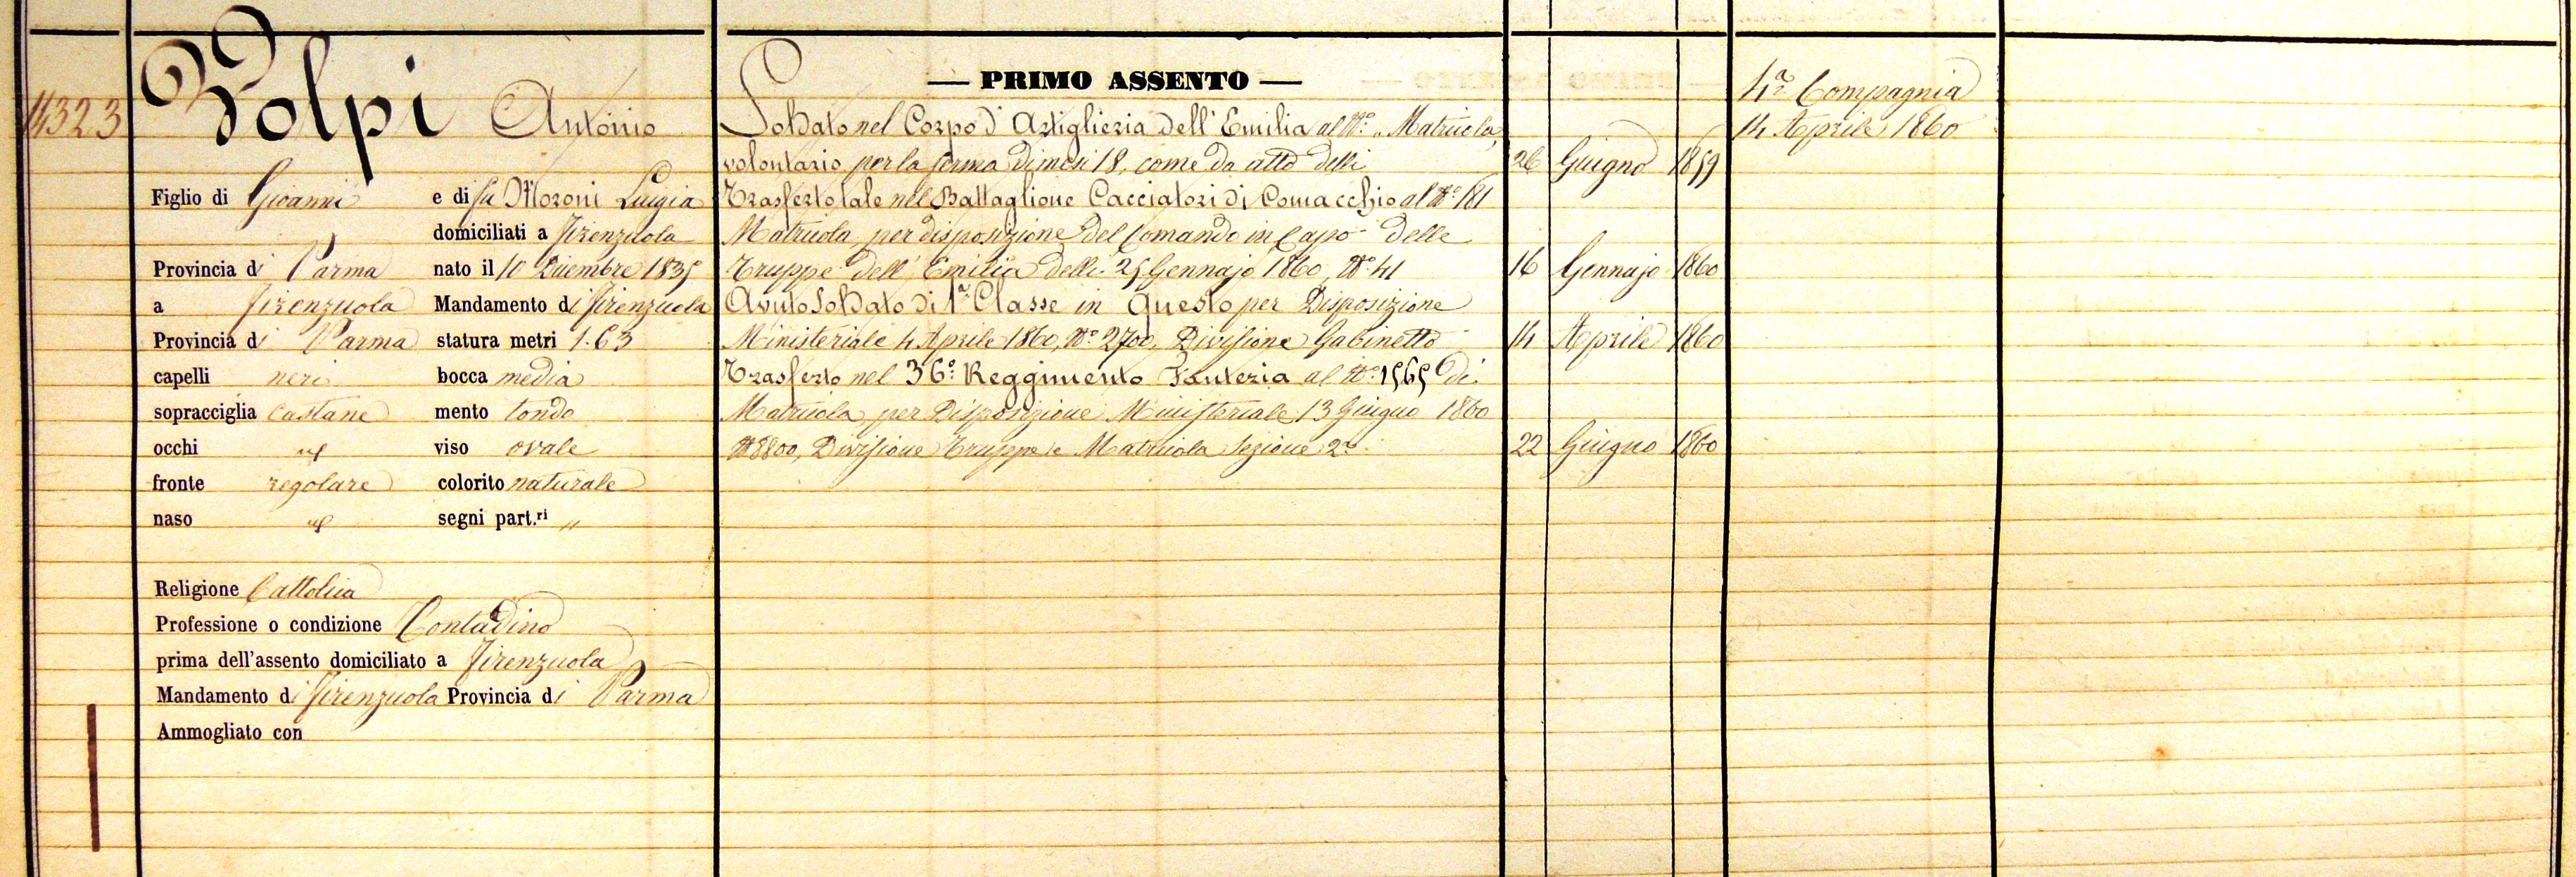 14323
Volpi Antonio
Figlio di Giovanni e di fu Moroni Luigia
domiciliati a Firenzuola
Provincia di Parma nato il 10 Dicembre 1835
a Firenzuola Mandamento di Firenzuola
Provincia di Parma statura metri 1.63
capelli neri bocca media
sopracciglia castane mento tondo
occhi viso ovale
fronte regolare colorito naturale
naso segni part.ri "
Religione Cattolica
Professione o condizione Contadino
prima dell'assento domiciliato a Firenzuola
Mandamento di Firenzuola Provincia di Parma
Ammogliato con
— PRIMO ASSENTO —
Soldato nel Corpo d'Artiglieria dell'Emilia al N.o „ Matricola,
volontario per la ferma di mesi 18, come da atto delli 26 Giugno 1859
Trasferto tale nel Battaglione Cacciatori di Comacchio al N.o 181
Matricola per disposizione del Comando in Capo delle
Truppe dell'Emilia delli 25 Gennajo 1860, N.o 41 16 Gennajo 1860
Avuto Soldato di 1.a Classe in questo per Disposizione
Ministeriale 4 Aprile 1860, N.o 2700, Divisione Gabinetto 14 Aprile 1860
Trasferto nel 36.o Reggimento Fanteria al N.o 1565 di
Matricola per Disposizione Ministeriale 13 Giugno 1860
N.o 8800, Divisione Truppe e Matricola Sezione 2.a 22 Giugno 1860
4.a Compagnia
14 Aprile 1860